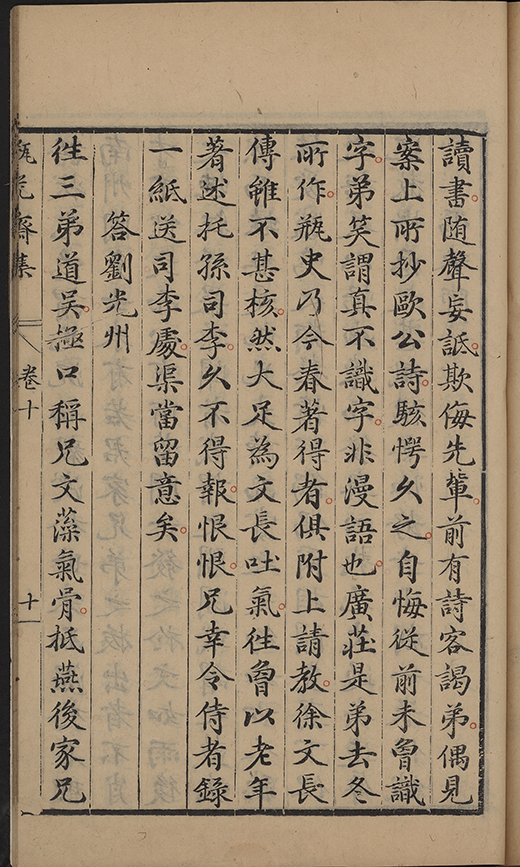 讀書隨聲妄詆欺侮先輩前有詩客謁弟偶見
案上所抄歐公詩駭愕久之自悔從前未曾識
字弟笑謂真不識字非漫語也廣莊是弟去冬
所作瓶史乃今春著得者俱附上請教徐文長
傳雖不甚核然大足為文長吐氣徃曾以老年
著述托孫司李久不得報恨恨兄幸令侍者錄
一紙送司李處渠當留意矣
答劉光州
徃三弟道吳極口稱兄文藻氣骨抵燕後家兄
瓶花齋集
卷十
十